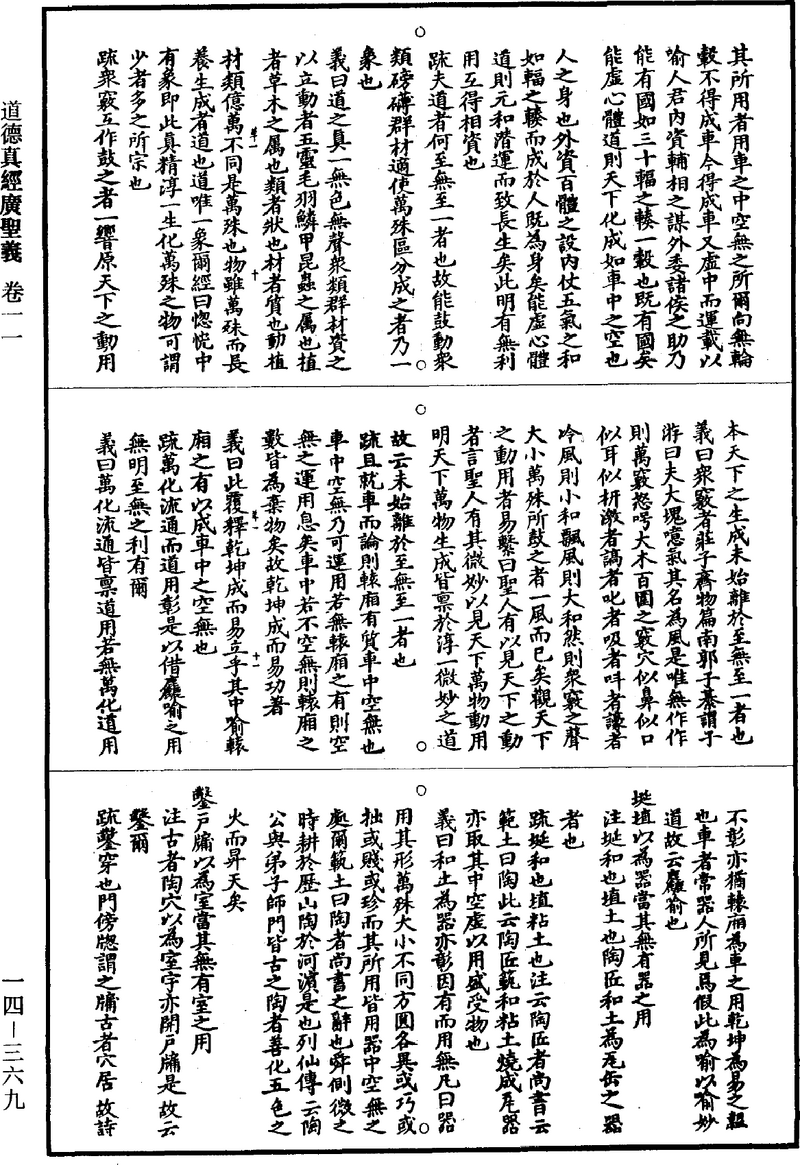 道德真經廣聖義　卷一一
一四—三六九
其所用者用車之中空無之所爾向無輪
轂不得成車今得成車又虛中而運載以
喻人君內資輔相之謀外委諸侯之助乃
能有國如三十輻之輳一轂也既有國矣
能虛心體道則天下化成如車中之空也
人之身也外資百體之設內仗五氣之和
如輻之輳而成於人既為身矣能虛心體
道則元和潛運而致長生矣此明有無利
用互得相資也
疏夫道者何至無至一者也故能鼓動衆
類磅礡群材適使萬殊區分成之者乃一
象也
義曰道之真一無色無聲衆類群材資之
以立動者五靈毛羽鱗甲昆蟲之屬也植
者草木之屬也類者狀也材者質也動植
材類億萬不同是萬殊也物雖萬殊而長
養生成者道也道唯一象爾經曰惚恍中
有象即此真精淳一生化萬殊之物可謂
少者多之所宗也
疏衆竅互作鼓之者一響原天下之動用
本天下之生成未始離於至無至一者也
義曰衆竅者莊子齊物篇南郭子綦謂子
游曰夫大塊噫氣其名為風是唯無作作
則萬竅怒呺大木百圍之竅穴似鼻似口
似耳似枅激者謞者叱者吸者叫者譹者
冷風則小和飄風則大和然則衆竅之聲
大小萬殊所鼓之者一風而已矣觀天下
之動用者易繫曰聖人有以見天下之動
者言聖人有其微妙以見天下萬物動用
明天下萬物生成皆禀於淳一微妙之道
故云未始離於至無至一者也
疏且就車而論則轅廂有質車中空無也
車中空無乃可運用若無轅廂之有則空
無之運用息矣車中若不空無則轅廂之
數皆為棄物矣故乾坤成而易功著
義曰此覆釋乾坤成而易立乎其中喻轅
廂之有以成車中之空無也
疏萬化流通而道用彰是以借麤喻之用
無明至無之利有爾
義曰萬化流通皆禀道用若無萬化道用
不彰亦猶轅廂為車之用乾坤為易之韞
也車者常器人所見焉假此為喻以喻妙
道故云麤喻也
埏埴以為器當其無有器之用
注埏和也埴土也陶匠和土為瓦缶之器
者也
疏埏和也埴粘土也注云陶匠者尚書云
範土曰陶此云陶匠範和粘土燒成瓦器
亦取其中空虛以用盛受物也
義曰和土為器亦彰因有而用無凡曰器
用其形萬殊大小不同方圓各異或巧或
拙或賤或珍而其所用皆用器中空無之
處爾範土曰陶者尚書之辭也舜側微之
時耕於歷山陶於河濱是也列仙傳云陶
公與弟子師門皆古之陶者善化五色之
火而昇天矣
鑿戶牖以為室當其無有室之用
注古者陶穴以為室宇亦開戶牖是故云
鑿爾
疏鑿穿也門傍牕謂之牖古者穴居故詩